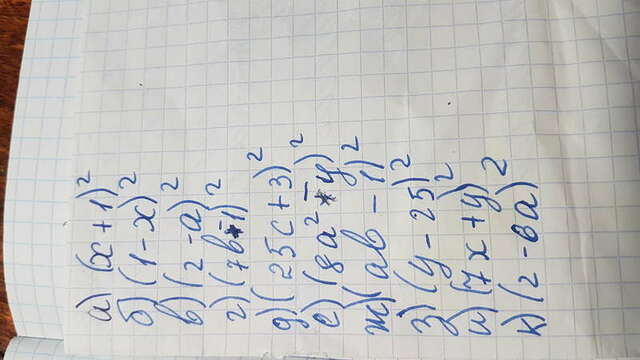 а) (x + 1)²
б) (1 - x)²
в) (2 - a)²
г) (7b - 1)²
д) (25c + 3)²
е) (8a² - y)²
ж) (ab - 1)²
з) (y - 25)²
и) (7x + y)²
к) (2 - 6a)²